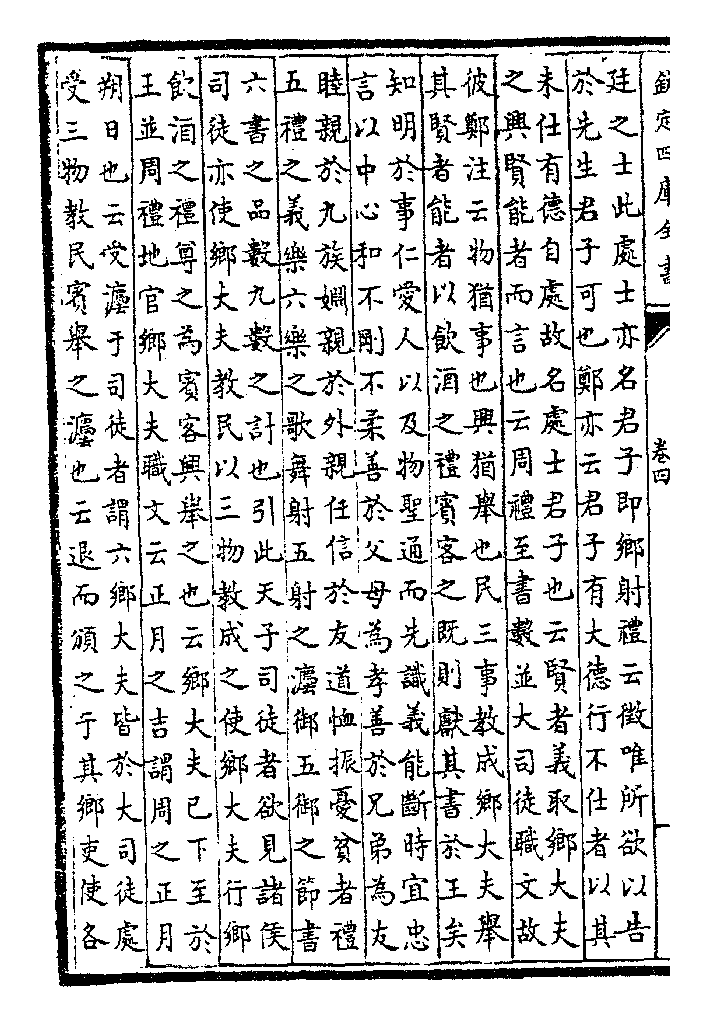 欽定四庫全書
卷四
廷之士此處士亦名君子即鄉射禮云徵唯所欲以告
於先生君子可也鄭亦云君子有大德行不仕者以其
未仕有德自處故名處士君子也云賢者義取鄉大夫
之興賢能者而言也云周禮至書數並大司徒職文故
彼鄭注云物猶事也興猶舉也民三事教成鄉大夫舉
其賢者能者以飲酒之禮賓客之既則獻其書於王矣
知明於事仁愛人以及物聖通而先識義能斷時宜忠
言以中心和不剛不柔善於父母為孝善於兄弟為友
睦親於九族婣親於外親任信於友道恤振憂貧者禮
五禮之義樂六樂之歌舞射五射之灋御五御之節書
六書之品數九數之計也引此天子司徒者欲見諸侯
司徒亦使鄉大夫教民以三物教成之使鄉大夫行鄉
飲酒之禮尊之為賓客興舉之也云鄉大夫已下至於
王並周禮地官鄉大夫職文云正月之吉謂周之正月
朔日也云受灋于司徒者謂六鄉大夫皆於大司徒處
受三物教民賓舉之灋也云退而頒之于其鄉吏使各